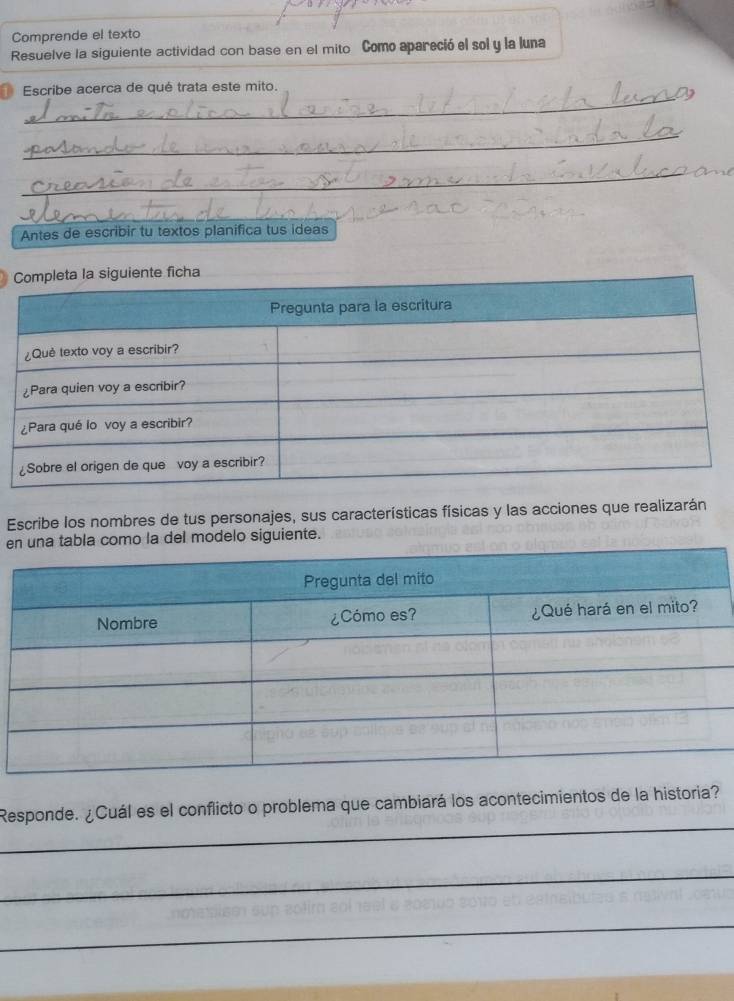 Comprende el texto
Resuelve la siguiente actividad con base en el mito Como apareció el sol y la luna
1 Escribe acerca de qué trata este mito.
el mito explica el origen del sol y la luna,
pasando de una
creasion de
elementos de
Antes de escribir tu textos planifica tus ideas
Completa la siguiente ficha
Pregunta para la escritura
¿Què texto voy a escribir?
¿Para quien voy a escribir?
¿Para qué lo voy a escribir?
¿Sobre el origen de que voy a escribir?
Escribe los nombres de tus personajes, sus características físicas y las acciones que realizarán
en una tabla como la del modelo siguiente.
Pregunta del mito
Nombre ¿Cómo es? ¿Qué hará en el mito?
Responde. ¿Cuál es el conflicto o problema que cambiará los acontecimientos de la historia?